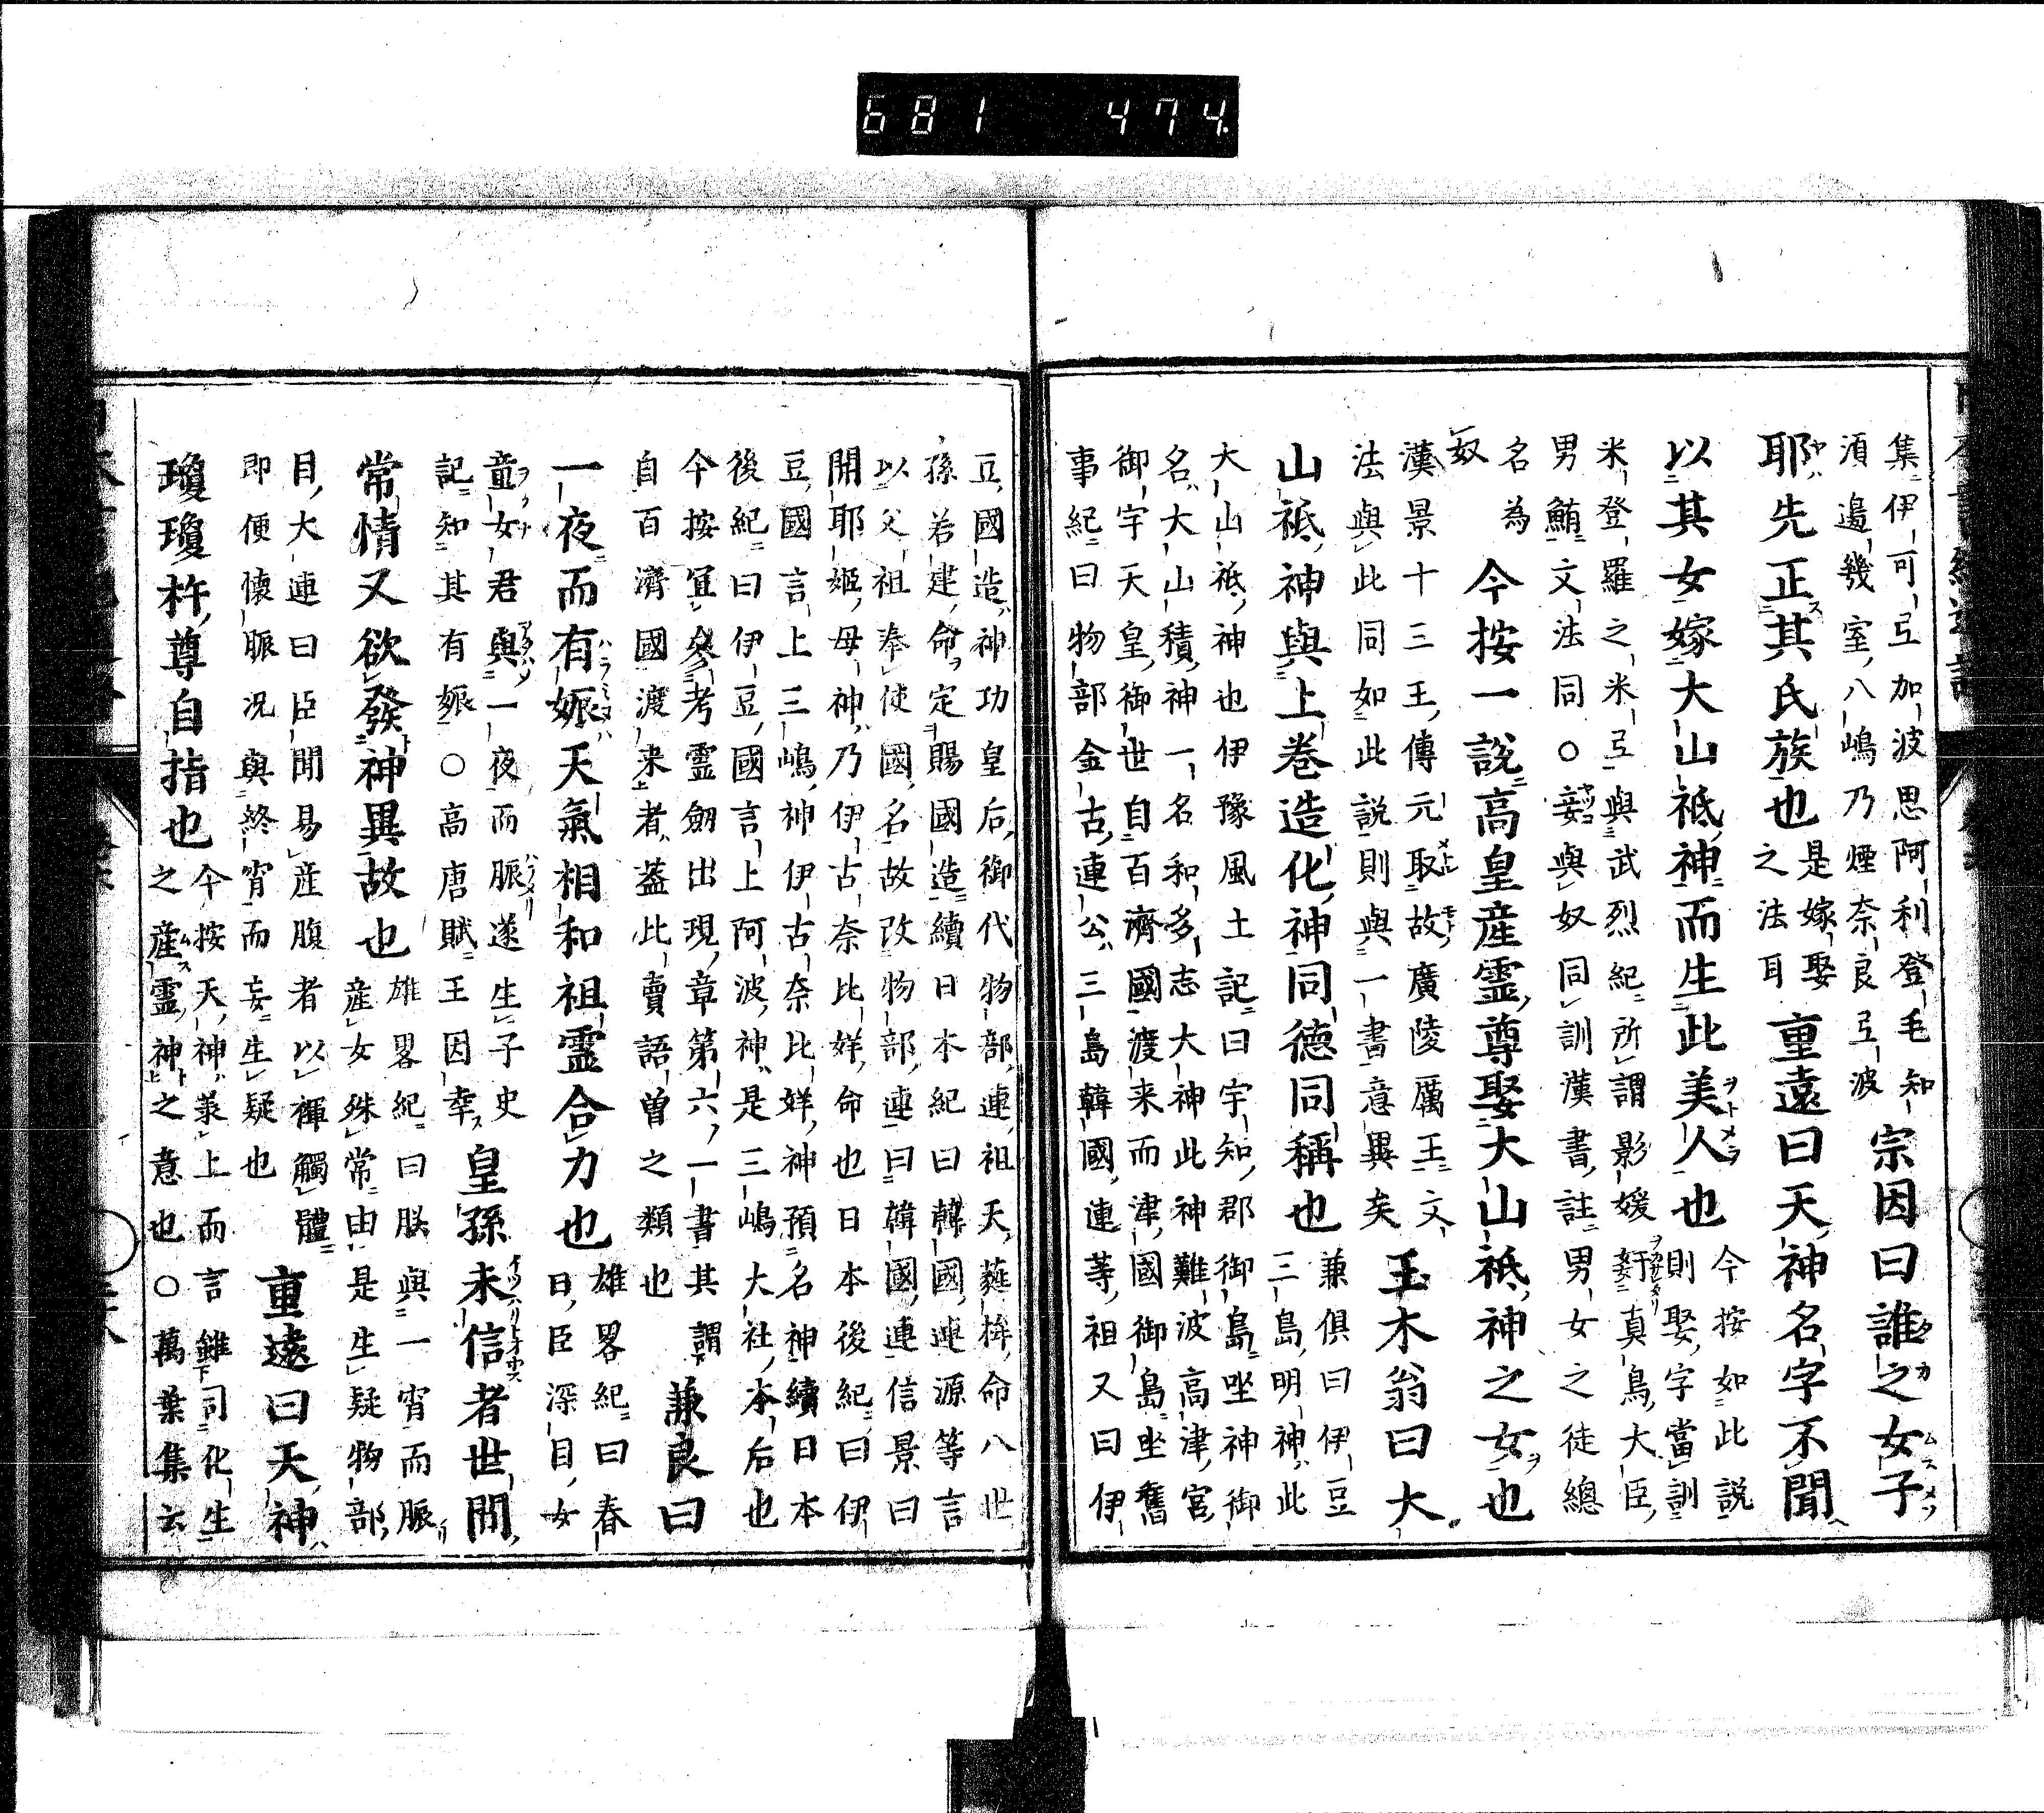 681 474
集伊可弖加波思阿利登毛知
湏邉幾室八嶋乃煙奈良弖波
宗因曰誰之女子
耶先正其氏族也
是嫁娶
之法耳
重遠曰天神名字不聞
以其女嫁大山祗神而生此美人也
今按如此説
則娶字當訓
米登羅之米弖與武烈紀所謂影媛奸真鳥大臣
男鮪文法同○妾與奴同訓漢書註男女之徒總
名為
奴
今按一説高皇産霊尊娶大山祗神之女也
漢景十三王傳元取故廣陵厲王文
法與此同如此説則與一書意異矣
玉木翁曰大
山祗神與上巻造化神同德同稱也
兼俱曰伊豆
三島明神此
大山祗神也伊豫風土記曰宇知郡御島坐神御
名大山積神一名和多志大神此神難波高津宮
御宇天皇御世自百濟國渡来而津國御島坐舊
事紀曰物部金古連公三島韓國連等祖又曰伊
豆國造神功皇后御代物部連祖天蕤桙命八世
孫若建命定賜國造續日本紀曰韓國連源等言
以父祖奉使國名故改物部連曰韓國連信景曰
開耶姬母神乃伊古奈比咩命也日本後紀曰伊
豆國言上三嶋神伊古奈比咩神預名神續日本
後紀曰伊豆國言上阿波神是三嶋大社本后也
今按宜参考霊劔出現章第六一書其謂
自百濟國渡来者葢此賣語曽之類也
兼良曰
一夜而有娠天氣相和祖霊合力也
雄畧紀曰春
日臣深目女
童女君與一夜而脤遂生子史
記知其有娠○高唐賦王因幸
皇孫未信者世間
常情又欲發神異故也
雄畧紀曰朕與一宵而脤
産女殊常由是生疑物部
目大連曰臣聞易産腹者以褌觸體
即便懷脤况與終宵而妄生疑也
重遠曰天神
瓊瓊杵尊自指也
今按天神承上而言雖同化生
之産霊神之意也○萬葉集云